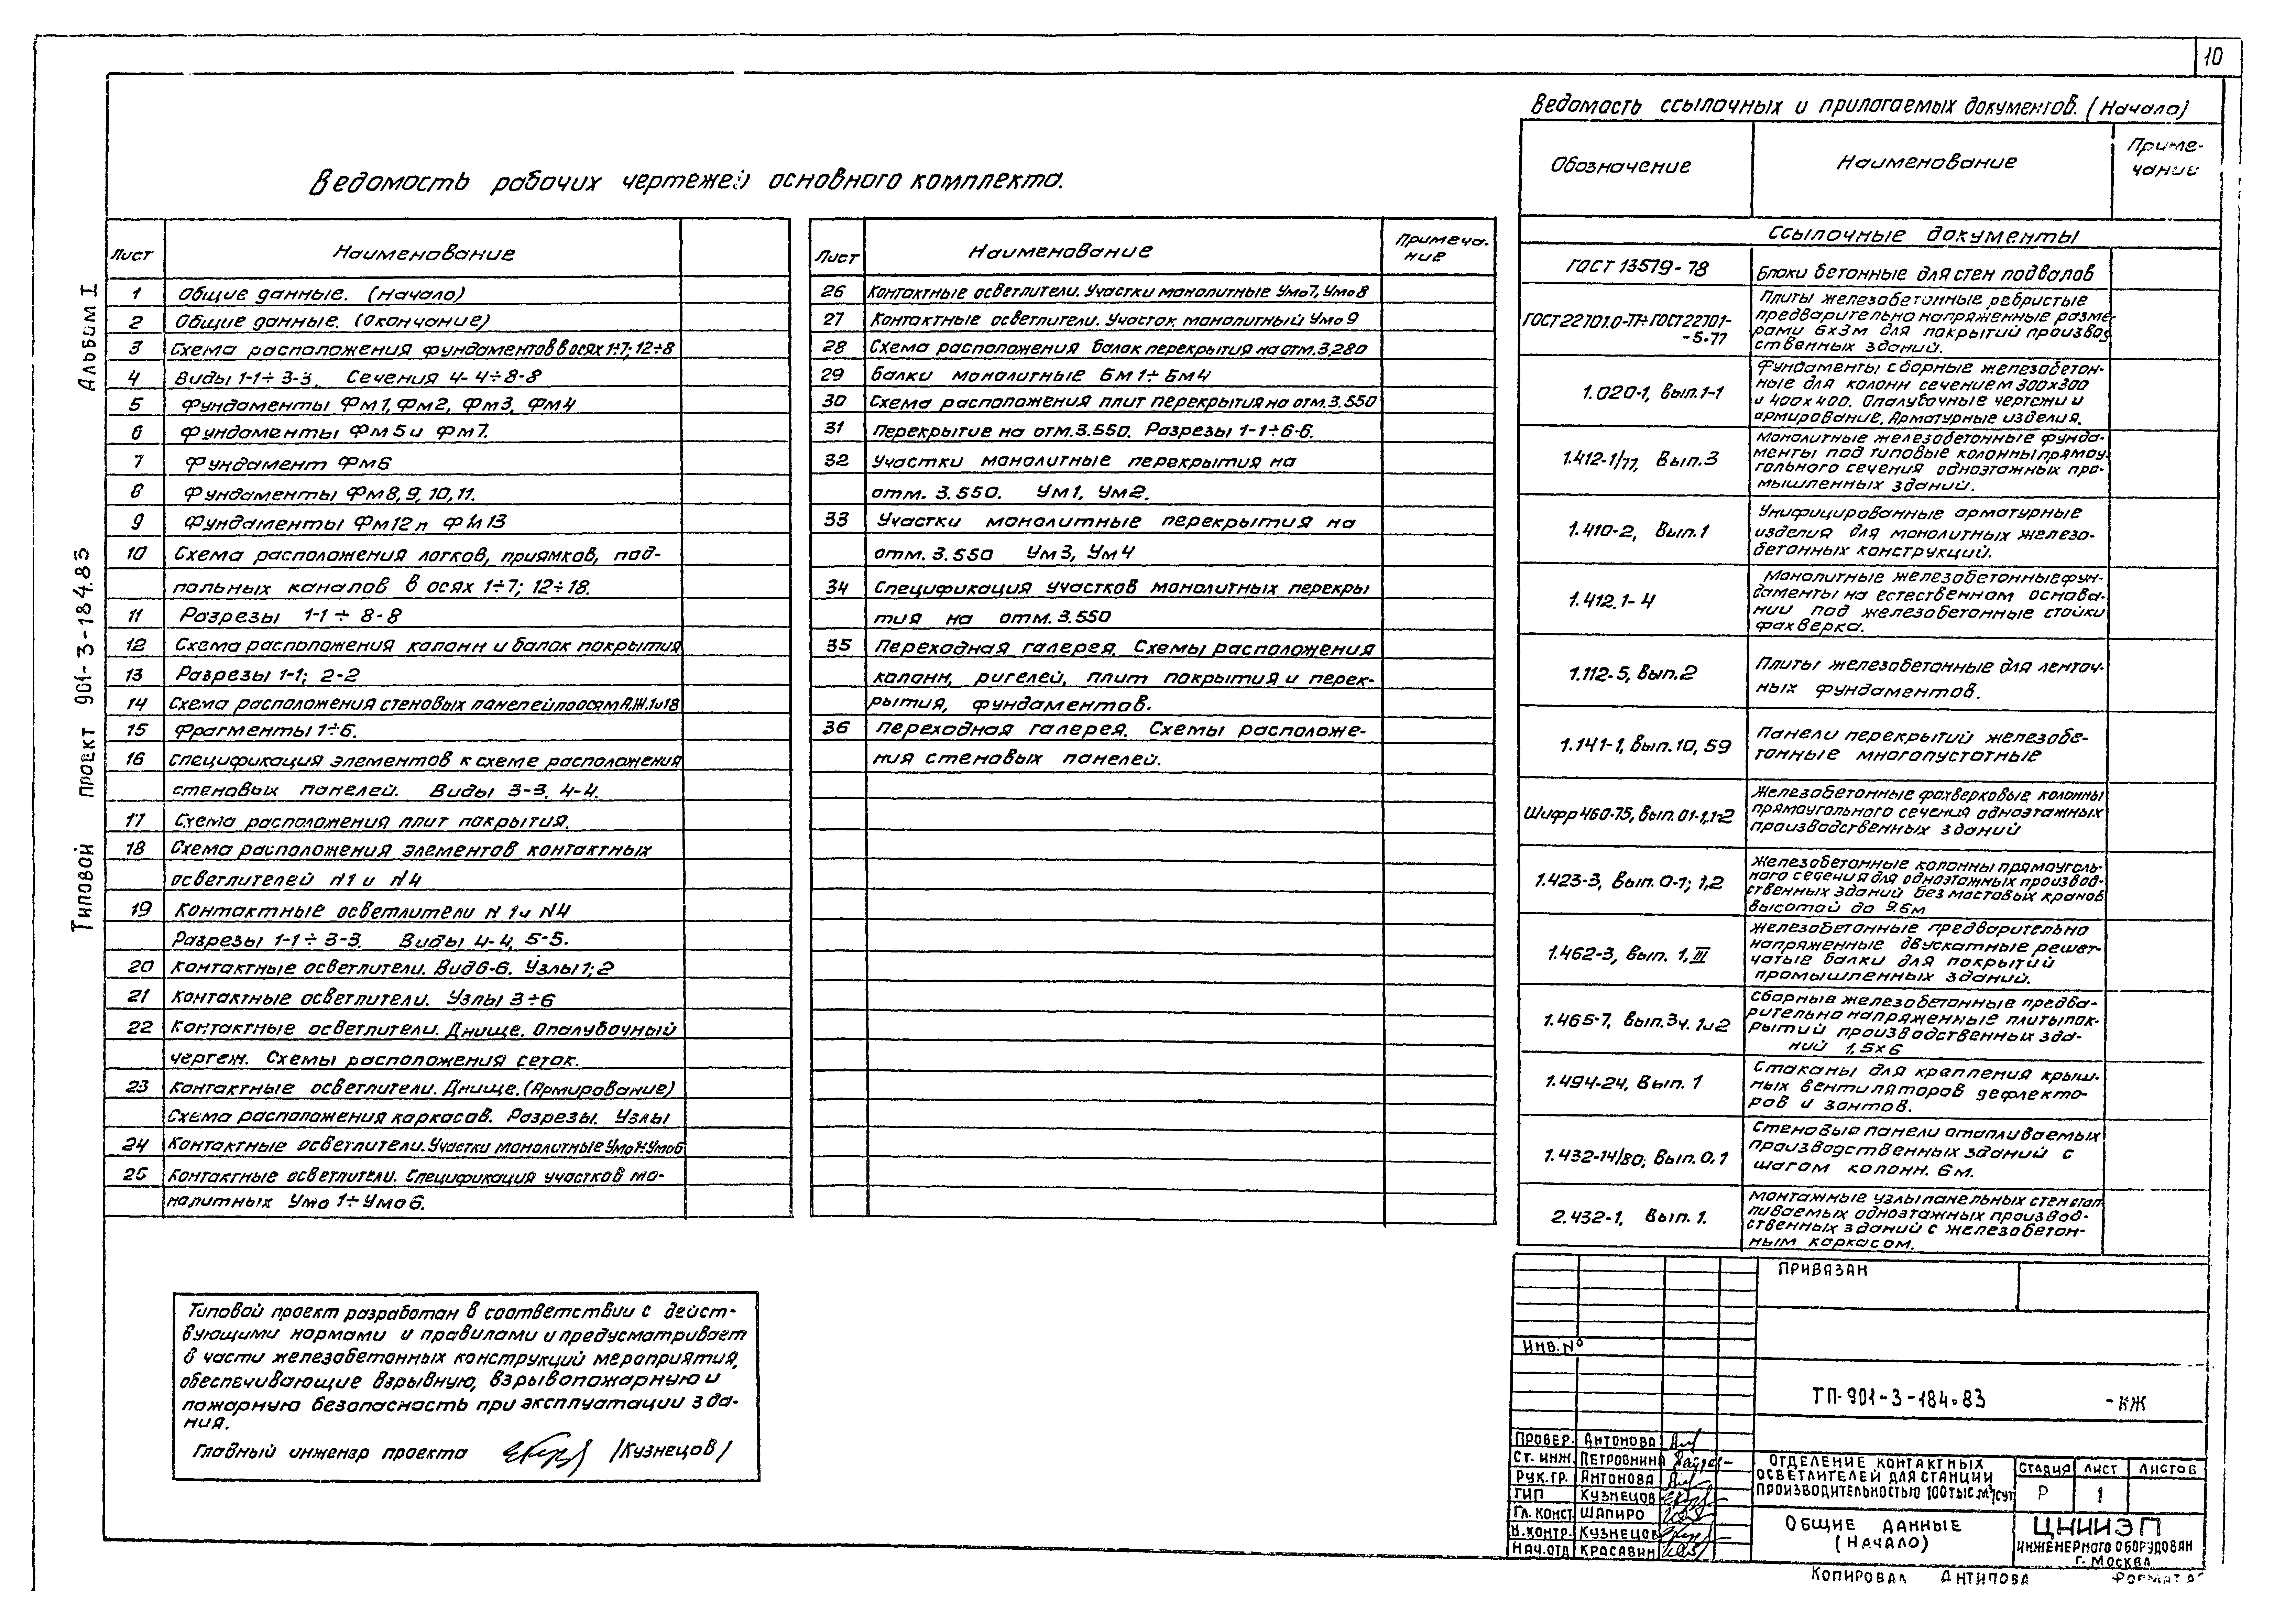 10
Альбом I
Типовой проект 901-3-184.83
Ведомость рабочих чертежей основного комплекта.
Лист Наименование
1 Общие данные. (начало)
2 Общие данные. (окончание)
3 Схема расположения фундаментов в осях 1÷7; 12÷8
4 Виды 1-1÷3-3. Сечения 4-4÷8-8
5 Фундаменты Фм1, Фм2, Фм3, Фм4
6 Фундаменты Фм5 и Фм7.
7 Фундамент Фм6
8 Фундаменты Фм8, 9, 10, 11.
9 Фундаменты Фм12 и Фм13
10 Схема расположения лотков, приямков, под-
польных каналов в осях 1÷7; 12÷18.
11 Разрезы 1-1÷8-8
12 Схема расположения колонн и балок покрытия
13 Разрезы 1-1; 2-2
14 Схема расположения стеновых панелей по осям А,Ж,1 и 18
15 Фрагменты 1÷6.
16 Спецификация элементов к схеме расположения
стеновых панелей. Виды 3-3, 4-4.
17 Схема расположения плит покрытия.
18 Схема расположения элементов контактных
осветлителей N1 и N4
19 Контактные осветлители N1 и N4
Разрезы 1-1÷3-3. Виды 4-4, 5-5.
20 Контактные осветлители. Вид 6-6. Узлы 1; 2
21 Контактные осветлители. Узлы 3÷6
22 Контактные осветлители. Днище. Опалубочный
чертеж. Схемы расположения сеток.
23 Контактные осветлители. Днище. (Армирование)
Схема расположения каркасов. Разрезы. Узлы
24 Контактные осветлители. Участки монолитные Умо1÷Умо6
25 Контактные осветлители. Спецификация участков мо-
нолитных Умо1÷Умо6.
Лист Наименование Примеча-
ние
26 Контактные осветлители. Участки монолитные Умо7, Умо8
27 Контактные осветлители. Участок монолитный Умо9
28 Схема расположения балок перекрытия на отм. 3.280
29 Балки монолитные Бм1÷Бм4
30 Схема расположения плит перекрытия на отм. 3.550
31 Перекрытие на отм. 3.550. Разрезы 1-1÷6-6.
32 Участки монолитные перекрытия на
отм. 3.550. Ум1, Ум2.
33 Участки монолитные перекрытия на
отм. 3.550 Ум3, Ум4
34 Спецификация участков монолитных перекры
тия на отм. 3.550
35 Переходная галерея. Схемы расположения
колонн, ригелей, плит покрытия и перек-
рытия, фундаментов.
36 Переходная галерея. Схемы расположе-
ния стеновых панелей.
Ведомость ссылочных и прилагаемых документов. (Начало)
Обозначение Наименование Приме-
чание
Ссылочные документы
ГОСТ 13579-78 Блоки бетонные для стен подвалов
ГОСТ 22701.0-77÷ГОСТ 22701-
-5-77
Плиты железобетонные ребристые
предварительно напряженные разме-
рами 6х3м для покрытий производ
ственных зданий.
1.020-1, вып. 1-1
Фундаменты сборные железобетон-
ные для колонн сечением 300х300
и 400х400. Опалубочные чертежи и
армирование. Арматурные изделия.
1.412-1/77, Вып. 3
Монолитные железобетонные фунда-
менты под типовые колонны прямоу-
гольного сечения одноэтажных про-
мышленных зданий.
1.410-2, Вып. 1
Унифицированные арматурные
изделия для монолитных железо-
бетонных конструкций.
1.412.1-4
Монолитные железобетонные фун-
даменты на естественном основа-
нии под железобетонные стойки
фахверка.
1.112-5, Вып. 2
Плиты железобетонные для ленточ-
ных фундаментов.
1.141-1, вып. 10, 59
Панели перекрытий железобе-
тонные многопустотные
Шифр 460-75, вып. 01-1, 1-2
Железобетонные фахверковые колонны
прямоугольного сечения одноэтажных
производственных зданий
1.423-3, Вып. 0-1; 1,2
Железобетонные колонны прямоуголь-
ного сечения для одноэтажных производ-
ственных зданий без мостовых кранов
высотой до 9.6м
1.462-3, Вып. 1, III
Железобетонные предварительно
напряженные двускатные решет-
чатые балки для покрытий
промышленных зданий.
1.465-7, Вып. 3 ч. 1 и 2
Сборные железобетонные предва-
рительно напряженные плиты пок-
рытий производственных зда-
ний 1,5х6
1.494-24, Вып. 1
Стаканы для крепления крыш-
ных вентиляторов дефлекто-
ров и зонтов.
1.432-14/80; Вып. 0,1
Стеновые панели отапливаемых
производственных зданий с
шагом колонн. 6м.
2.432-1, Вып. 1.
Монтажные узлы панельных стен отап
ливаемых одноэтажных производ-
ственных зданий с железобетон-
ным каркасом.
Типовой проект разработан в соответствии с дейст-
вующими нормами и правилами и предусматривает
в части железобетонных конструкций мероприятия,
обеспечивающие взрывную, взрывопожарную и
пожарную безопасность при эксплуатации зда-
ния.
Главный инженер проекта /Кузнецов/
Привязан
Инв. №
ТП-901-3-184.83 -КЖ
Провер. Антонова
Ст. инж. Петровнина
Рук. гр. Антонова
ГИП Кузнецов
Гл. конст Шапиро
Н. контр. Кузнецов
Нач. отд Красавин
Отделение контактных
осветлителей для станции
производительностью 100 тыс. м³/сут
Стадия Лист Листов
Р 1
Общие данные
(начало)
ЦНИИЭП
инженерного оборудован
г. Москва
Копировал Антипова Формат